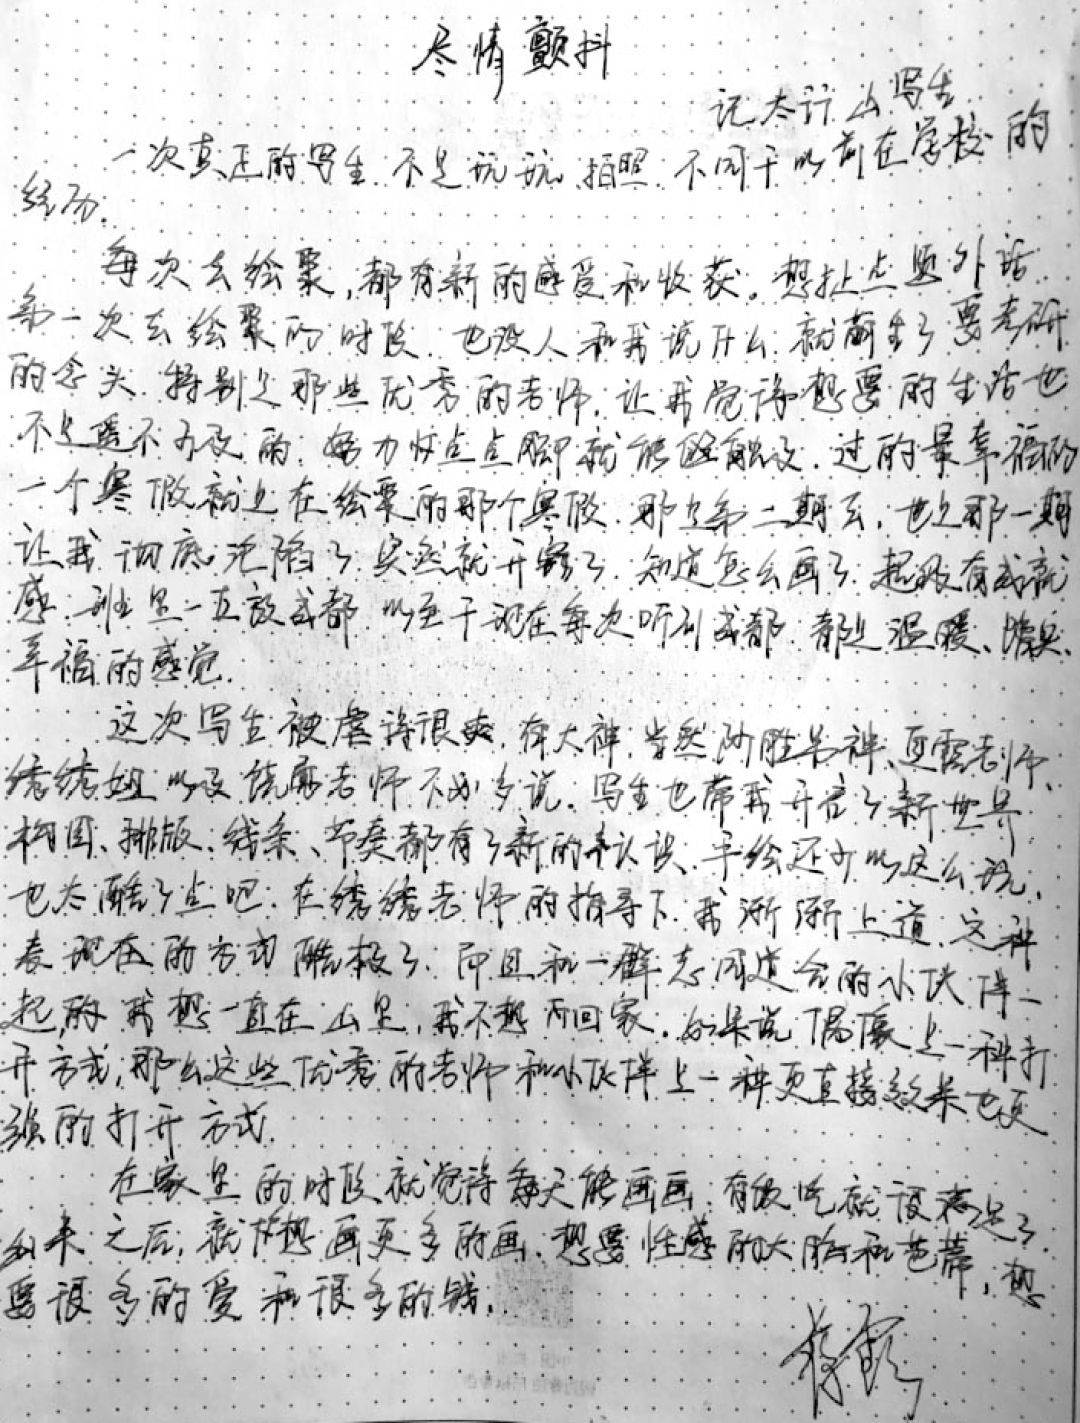 尽情颤抖
记太行山写生
一次真正的写生.不是玩玩.拍照.不同于以前在学校的
经历.
每次去绘聚,都有新的感受和收获。想扯点题外话.
第一次去绘聚的时候.也没人和我说什么.就萌生了要考研
的念头.特别是那些优秀的老师.让我觉得想要的生活也
不是遥不可及的.努力点点脚就能触及.过的最幸福的
一个寒假就是在绘聚的那个寒假.那是第二期去,也是那一期
让我彻底沦陷了.突然就开窍了.知道怎么画了.超级有成就
感.班里一直放成都.以至于现在每次听到成都.都是温暖、踏实、
幸福的感觉.
这次写生被虐得很爽.有大神.当然阿胜男神、夏雷老师、
绣绣姐以及老师不必多说.写生也带我开启了新世界
构图、排版、线条、节奏都有了新的认识.手绘还可以这么玩.
也太酷了点吧.在绣绣老师的指导下.我渐渐上道.这种
表现在的方式酷极了.而且和一群志同道合的小伙伴一
起的我想一直在山里,我不想再回家.如果说偶像是一种打
开方式,那么这些优秀的老师和小伙伴是一种更直接效果也更
强的打开方式.
在家里的时候.就觉得每天能画画.有饭吃就很满足了.
出来之后,就想画更多的画.想要性感的大脑和芭蕾,想
要很多的爱和很多的钱.